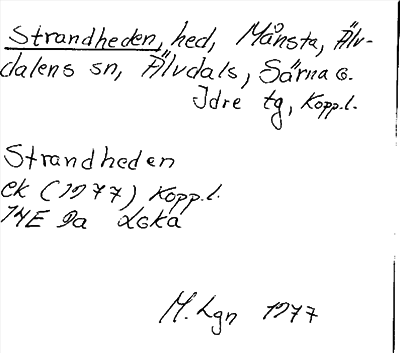 Strandheden, hed, Månsta, Älv-
dalens sn, Älvdals, Särna o.
Idre tg, Kopp.l.
Strandheden
ek (1977) Kopp.l.
14E 9a
M. Lgn 1977